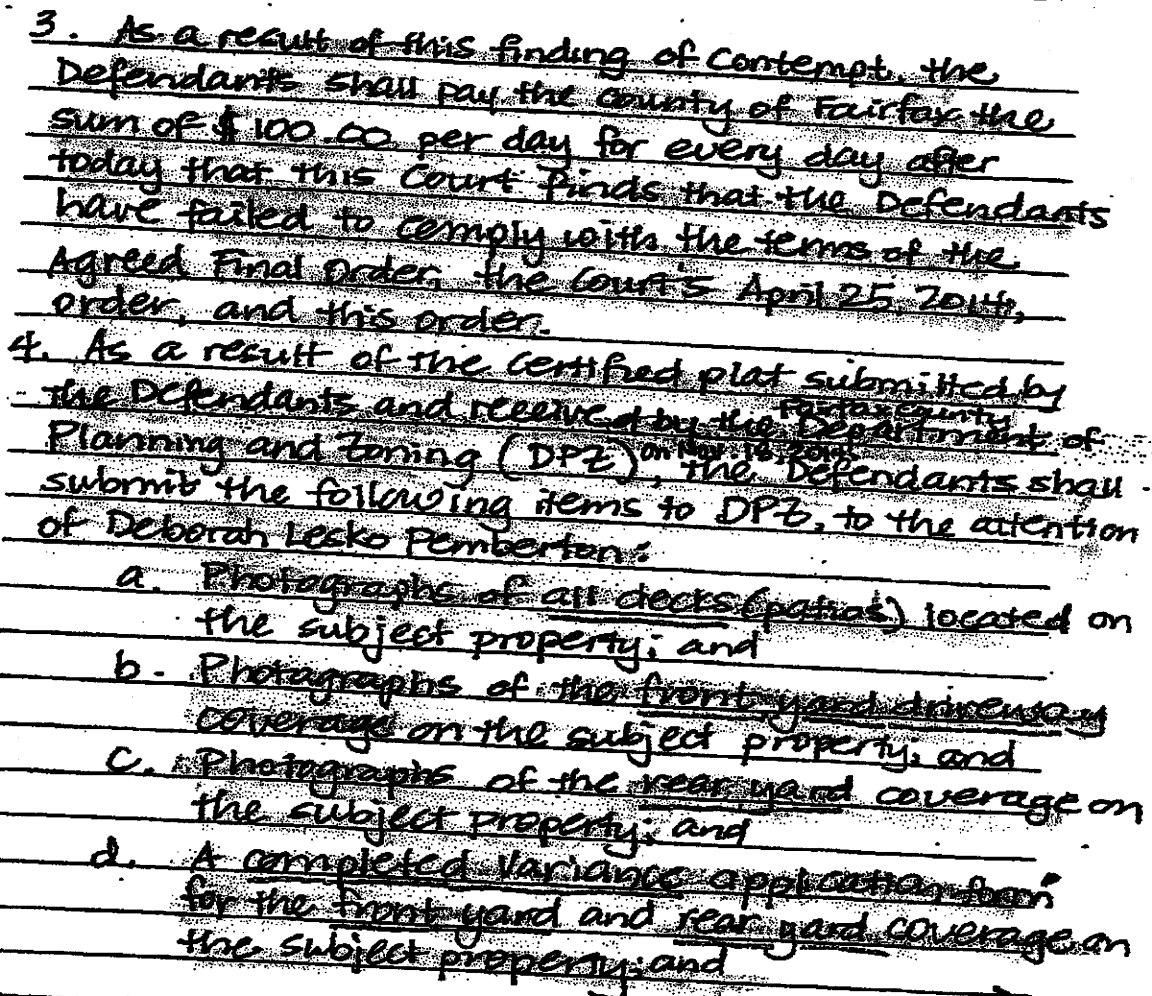 3. As a result of this finding of Contempt, the
Defendants shall pay the County of Fairfax the
sum of $100.00 per day for every day after
today that this Court finds that the Defendants
have failed to comply with the terms of the
Agreed Final Order, the Court's April 25, 2014,
order, and this order.
4. As a result of the certified plat submitted by
the Defendants and received by the Fairfax County Department of
Planning and Zoning (DPZ) on Nov. 18, 2014, the Defendants shall
submit the following items to DPZ, to the attention
of Deborah Lesko Pemberton:
a. Photographs of all decks (patios) located on
the subject property; and
b. Photographs of the front yard driveway
coverage on the subject property; and
c. Photographs of the rear yard coverage on
the subject property; and
d. A completed variance application form
for the front yard and rear yard coverage on
the subject property; and